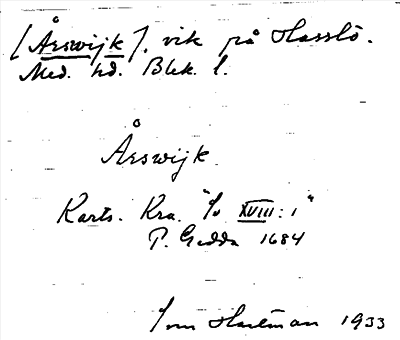 [Årswijk], vik på Hasslö.
Med. hd. Blek. l.
Årswijk
Karts. Kra. "Sv XVIII: 1"
P. Gedda 1684
Hartman 1933